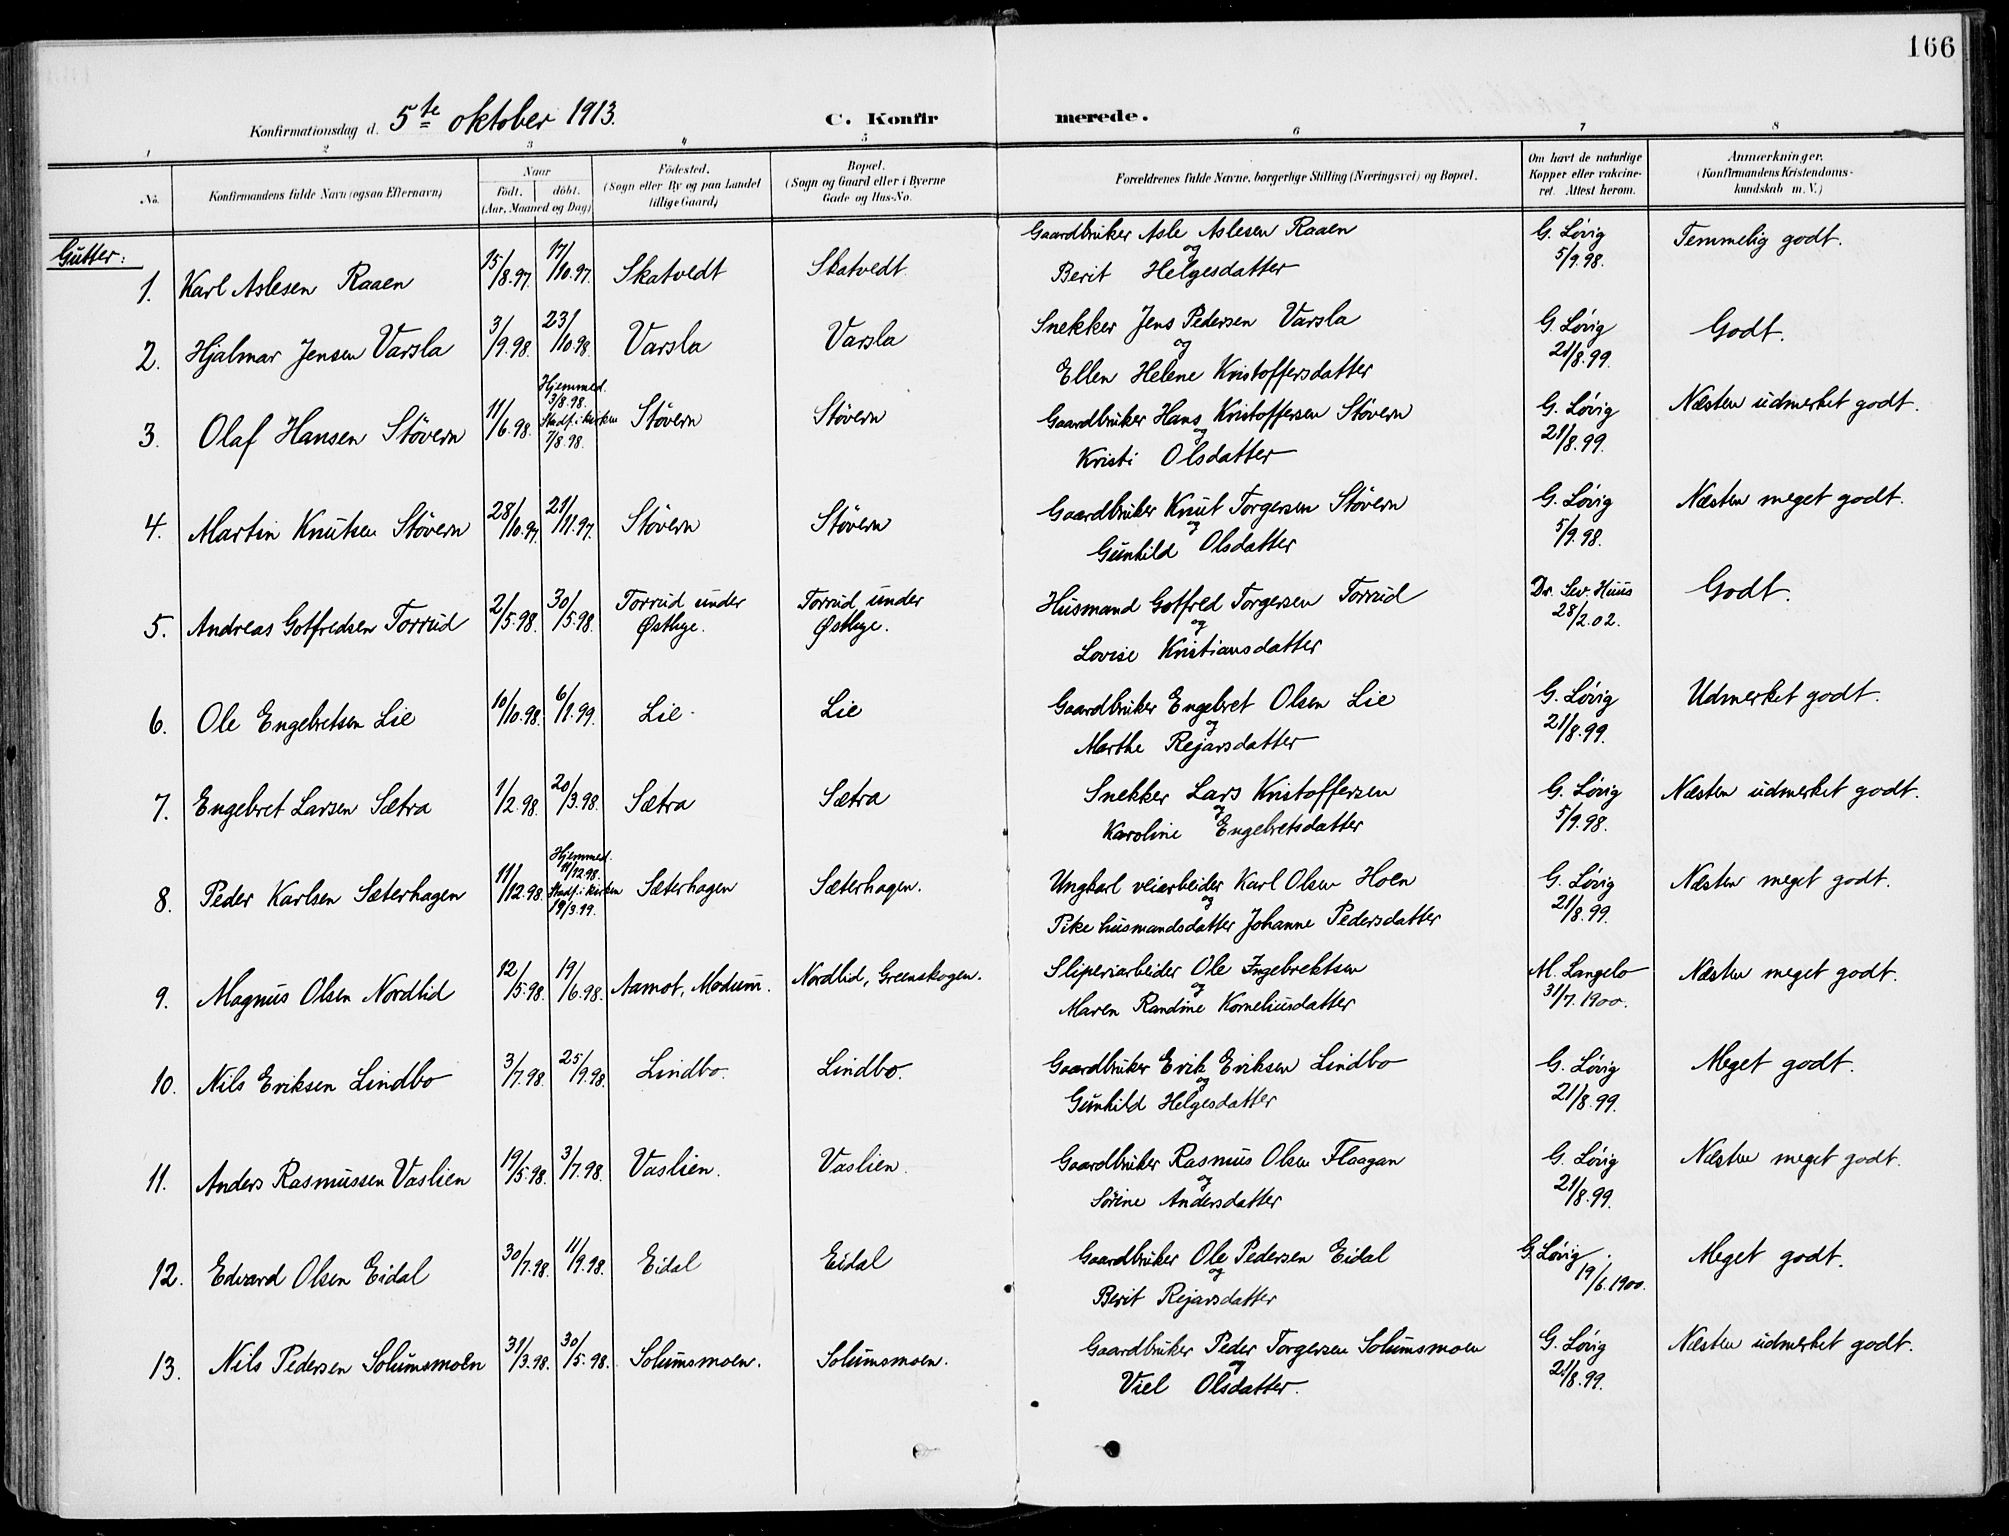 166
Konfirmationsdag d. 5te oktober 1913. C. Konfirmerede.
1 2 3 4 5 6 7 8
No. Konfirmandens fulde Navn (ogsaa Efternavn) Naar født. døbt. (Aar, Maaned og Dag) Födested. (Sogn eller By og paa Landet tillige Gaard) Bopæl. (Sogn og Gaard eller i Byerne Gade og Hus-No. Forældrenes fulde Navne, borgerlige Stilling (Næringsvei) og Bopæl. Om havt de naturlige Kopper eller vakcineret. Attest herom. Anmærkninger. (Konfirmandens Kristendomskundskab m. V.)
Gutter:
1. Karl Aslesen Raaen 15/8.97. 17/10.97. Skatvedt Skatvedt. Gaardbruker Asle Aslesen Raaen og Berit Helgesdatter G. Løvig 5/9.98. Temmelig godt.
2. Hjalmar Jensen Varsla 3/9.98. 23/10.98. Varsla Varsla Snekker Jens Pedersen Varsla og Ellen Helene Kristoffersdatter G. Løvig 21/8.99. Godt.
3. Olaf Hansen Støvern 11/6.98. Hjemmed. 3/8.98. Stadf. i kirken 7/8.98. Støvern Støvern Gaardbruker Hans Kristoffersen Støvern og Kristi Olsdatter G. Løvig 21/8.99. Næsten udmerket godt.
4. Martin Knutsen Støvern 28/10.97. 21/11.97. Støvern Støvern Gaardbruker Knut Torgersen Støvern og Gunhild Olsdatter G. Løvig 5/9.98. Næsten meget godt.
5. Andreas Gotfredsen Torrud 2/5.98. 30/5.98. Torrud under Østbye. Torrud under Østbye. Husmand Gotfred Torgersen Torrud og Lovise Kristiansdatter Dr. Sev. Huus 28/2.02. Godt.
6. Ole Engebretsen Lie 10/10.98. 6/1.99. Lie. Lie Gaardbruker Engebret Olsen Lie og Marthe Rejarsdatter G. Løvig 21/8.99. Udmerket godt.
7. Engebret Larsen Sætra 1/2.98. 20/3.98. Sætra Sætra Snekker Lars Kristoffersen og Karoline Engebretsdatter G. Løvig 5/9.98. Næsten udmerket godt.
8. Peder Karlsen Sæterhagen 11/12.98. Hjemmed. 11/12.98. Stadf. i kirken 19/3.99. Sæterhagen Sæterhagen. Ungkarl veiarbeider Karl Olsen Hoen og Pike husmandsdatter Johanne Pedersdatter G. Løvig 21/8.99. Næsten meget godt.
9. Magnus Olsen Nordlid 12/5.98. 19/6.98. Aamot, Modum. Nordlid, Greenskogen. Sliperiarbeider Ole Ingebrektsen og Maren Randine Korneliusdatter M. Langelo 31/7.1900. Næsten meget godt.
10. Nils Eriksen Lindbo 3/7.98. 25/9.98. Lindbo. Lindbo. Gaardbruker Erik Eriksen Lindbo og Gunhild Helgesdatter G. Løvig 21/8.99. Meget godt.
11. Anders Rasmussen Vaslien 19/5.98. 3/7.98. Vaslien. Vaslien. Gaardbruker Rasmus Olsen Flaagan og Sørine Andersdatter G. Løvig 21/8.99. Næsten meget godt.
12. Edvard Olsen Eidal 30/7.98. 11/9.98. Eidal Eidal Gaardbruker Ole Pedersen Eidal og Berit Rejarsdatter G. Løvig. 19/6.1900. Meget godt.
13. Nils Pedersen Solumsmoen 31/3.98. 30/5.98. Solumsmoen. Solumsmoen. Gaardbruker Peder Torgersen Solumsmoen og Viel Olsdatter. G. Løvig 21/8.99. Næsten udmerket godt.